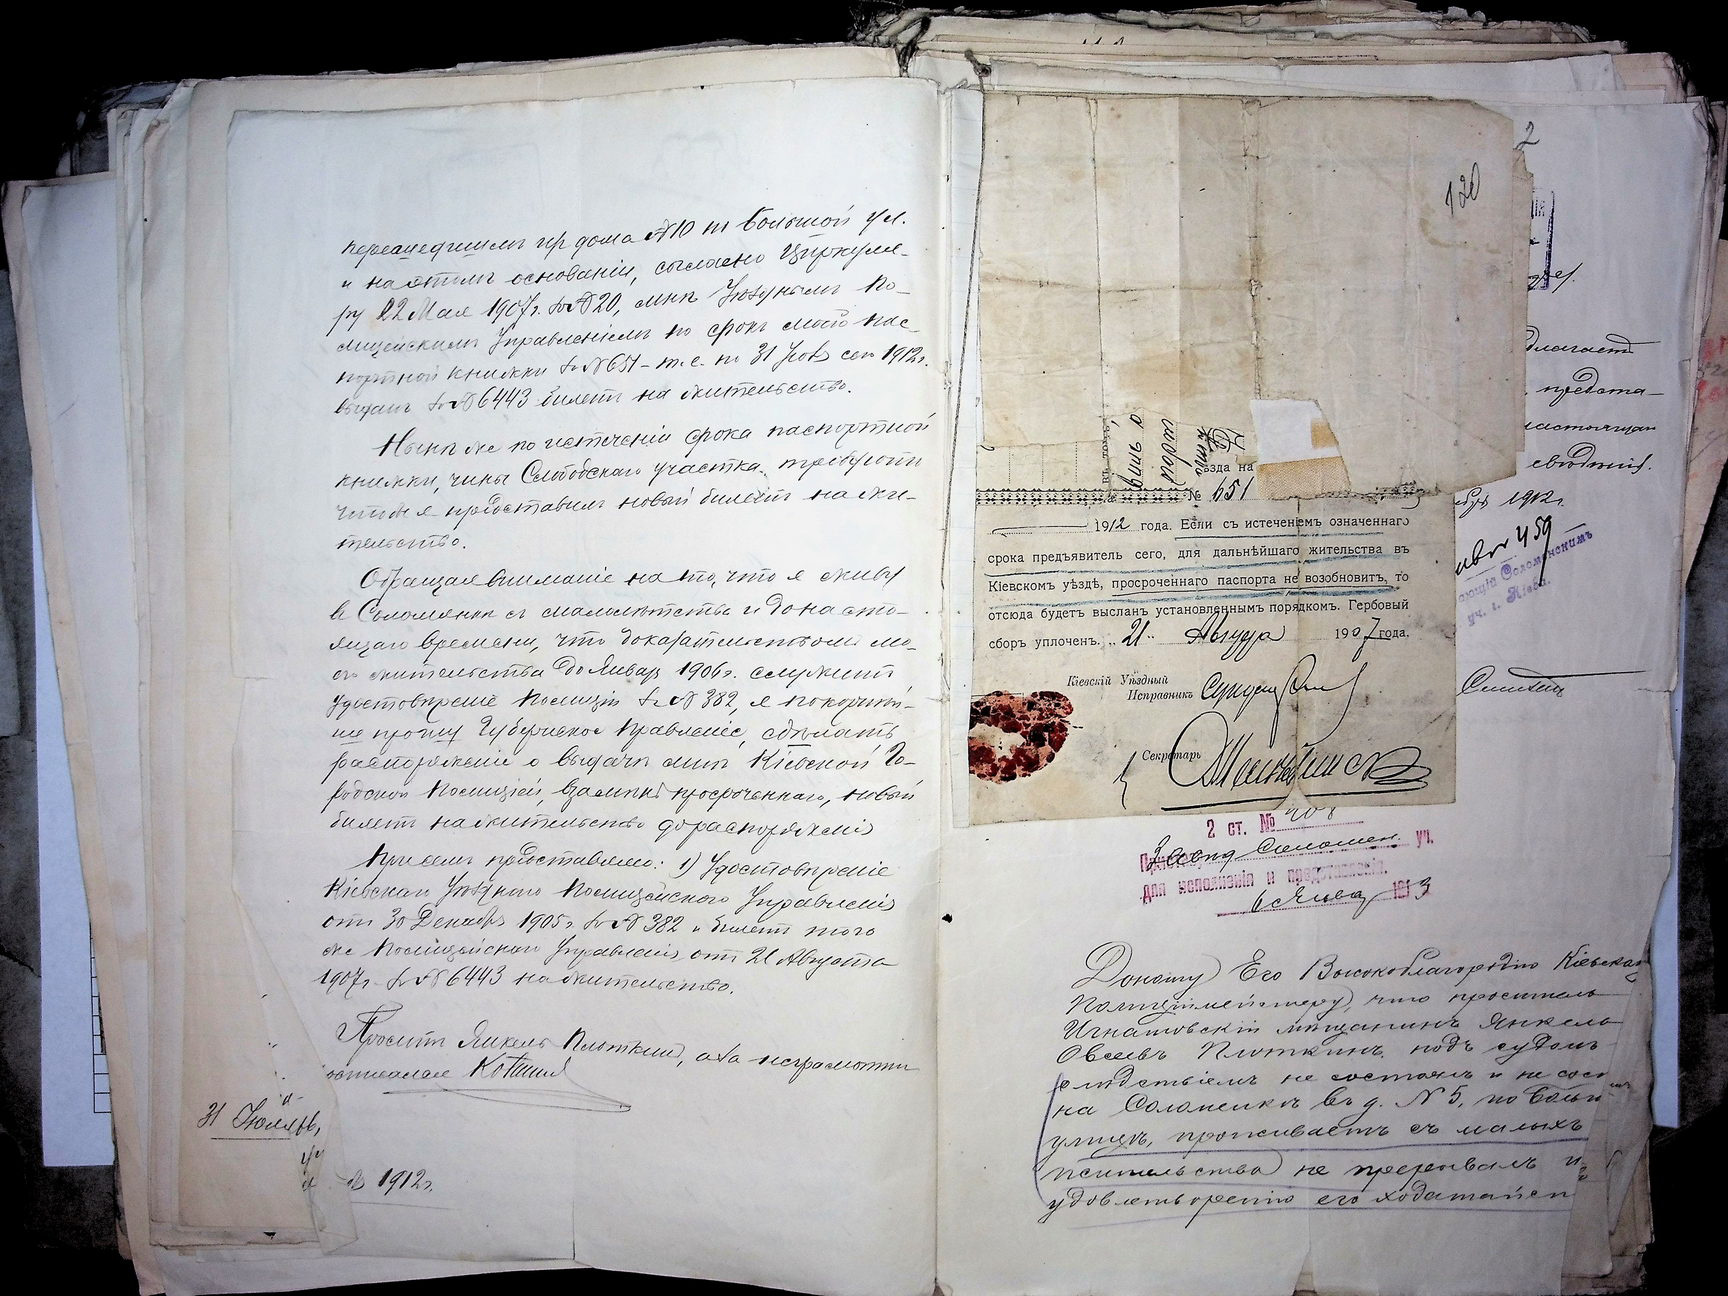 перешедшемъ изъ дома №10 по Большой ул.
и на этомъ основаніи, согласно Циркуля-
ру 22 Мая 1907г. за №20, мнѣ Уѣзднымъ По-
лицейскимъ Управленіемъ по срокъ моей пас-
портной книжки за №651 - т.е. по 31 Іюля сего 1912г.
выданъ за №6443 билетъ на жительство.
Нынѣ же по истеченіи срока паспортной
книжки, чины Слободского участка требуютъ
чтобы я представилъ новый билетъ на жи-
тельство.
Обращая вниманіе на то, что я живу
въ Соломенкѣ съ малолѣтства и до насто-
ящаго времени, что доказательствомъ мо-
его жительства до Января 1906г. служитъ
удостовѣреніе Полиціи за №382, я покорнѣй-
ше прошу Губернское Правленіе, сдѣлать
распоряженіе о выдачѣ мнѣ Кіевской Го-
родской Полиціей, взамѣнъ просроченнаго, новый
билетъ на жительство
При семъ представляю: 1) Удостовѣреніе
Кіевскаго Уѣзднаго Полицейскаго Управленія
отъ 30 Декабря 1905г. за №382 и билетъ того
же Полицейскаго Управленія отъ 21 Августа
1907г. за №6443 на жительство.
Проситъ Янкель Плоткинъ, а за неграмотн
31 Іюля
1912г.
120
уѣзда на
№ 651
1912 года. Если съ истеченіемъ означеннаго
срока предъявитель сего, для дальнѣйшаго жительства въ
Кіевскомъ уѣздѣ, просроченнаго паспорта не возобновитъ, то
отсюда будетъ высланъ установленнымъ порядкомъ. Гербовый
сборъ уплоченъ. „21“ Августа 1907 года.
Кіевскій Уѣздный
Исправникъ
Секретарь
2
предста-
1912г.
459
Соломенскимъ
уч. г. Кіева.
2 ст. №
Соломен. уч.
для исполненія и представленія.
1913
Доношу Его Высокоблагородію Кіевском
Полиціймейстеру, что проситель
Игнатовскій мѣщанинъ Янкель
Овсеевъ Плоткинъ подъ судомъ
слѣдствіемъ не состоялъ и не сост
на Соломенкѣ въ д. №5, по Больш
улицѣ, проживаетъ съ малыхъ
жительства не прерывалъ и
удовлетворенію его ходатайст